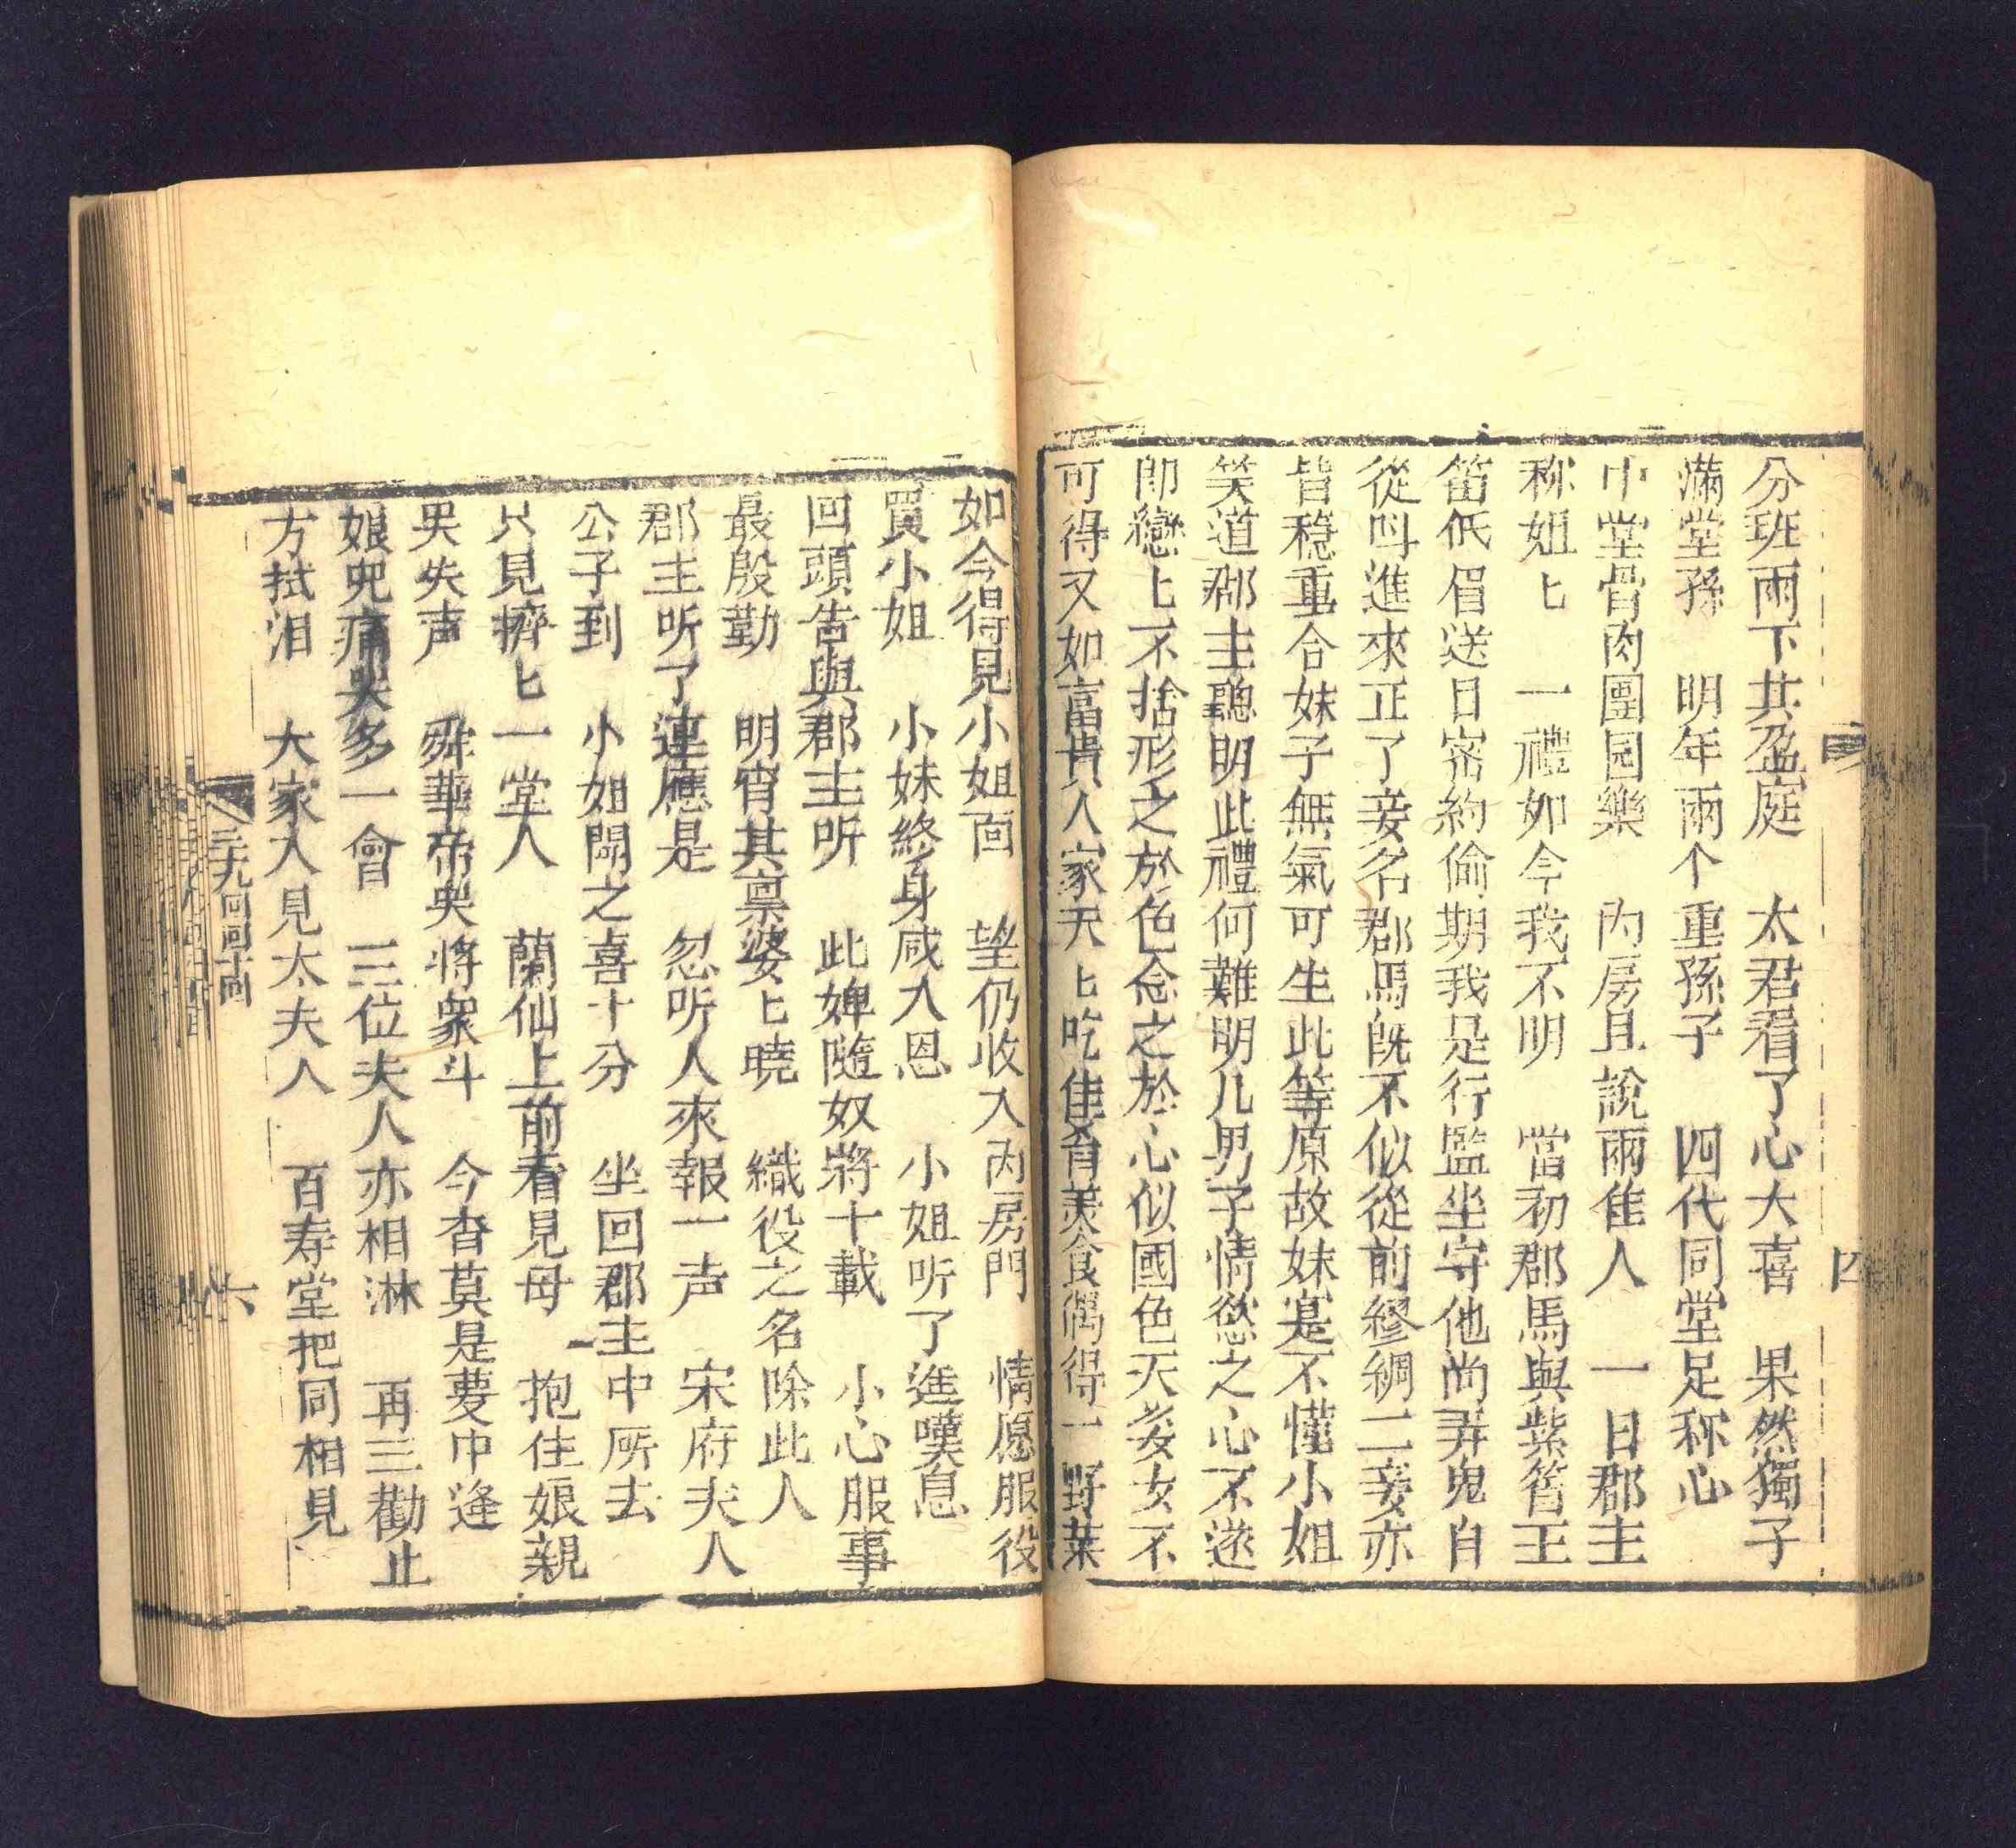 分班兩下共盈庭　太君看了心大喜　果然獨子
滿堂孫　明年兩个重孫子　四代同堂足称心
中堂骨肉團园樂　內房且說兩佳人　一日郡主
称姐匕　一禮如今我不明　當初郡馬與紫筲王
笛低眉送日密約偷期我是行監坐守他尚弄鬼自
從呌進來正了妾名郡馬旣不似從前繆綢二妾亦
皆穩重合妹子無氣可生此等原故妹寔不懂小姐
笑道郡主聰明此禮何難明儿男子情慾之心不遂
卽戀匕不捨形之於色念之於心似國色天姿女不
可得又如富貴人家天匕吃佳肴美食偶得一野菜
如今得見小姐面　望仍收入內房門　情愿服役
買小姐　小妹終身咸大恩　小姐听了進嘆息
回頭告與郡主听　此婢隨奴將十載　小心服事
最殷勤　明宵其禀婆匕曉　織役之名除此人
郡主听了連應是　忽听人來報一声　宋府夫人
公子到　小姐聞之喜十分　坐回郡主中所去
只見擠匕一堂人　蘭仙上前看見母　抱住娘親
哭失声　舜華帝哭將衆斗　今杳莫是夢中逢
娘兒痛哭多一會　三位夫人亦相淋　再三勸止
方拭泪　大家入見太夫人　百寿堂把同相見
三九回四十回
六
四